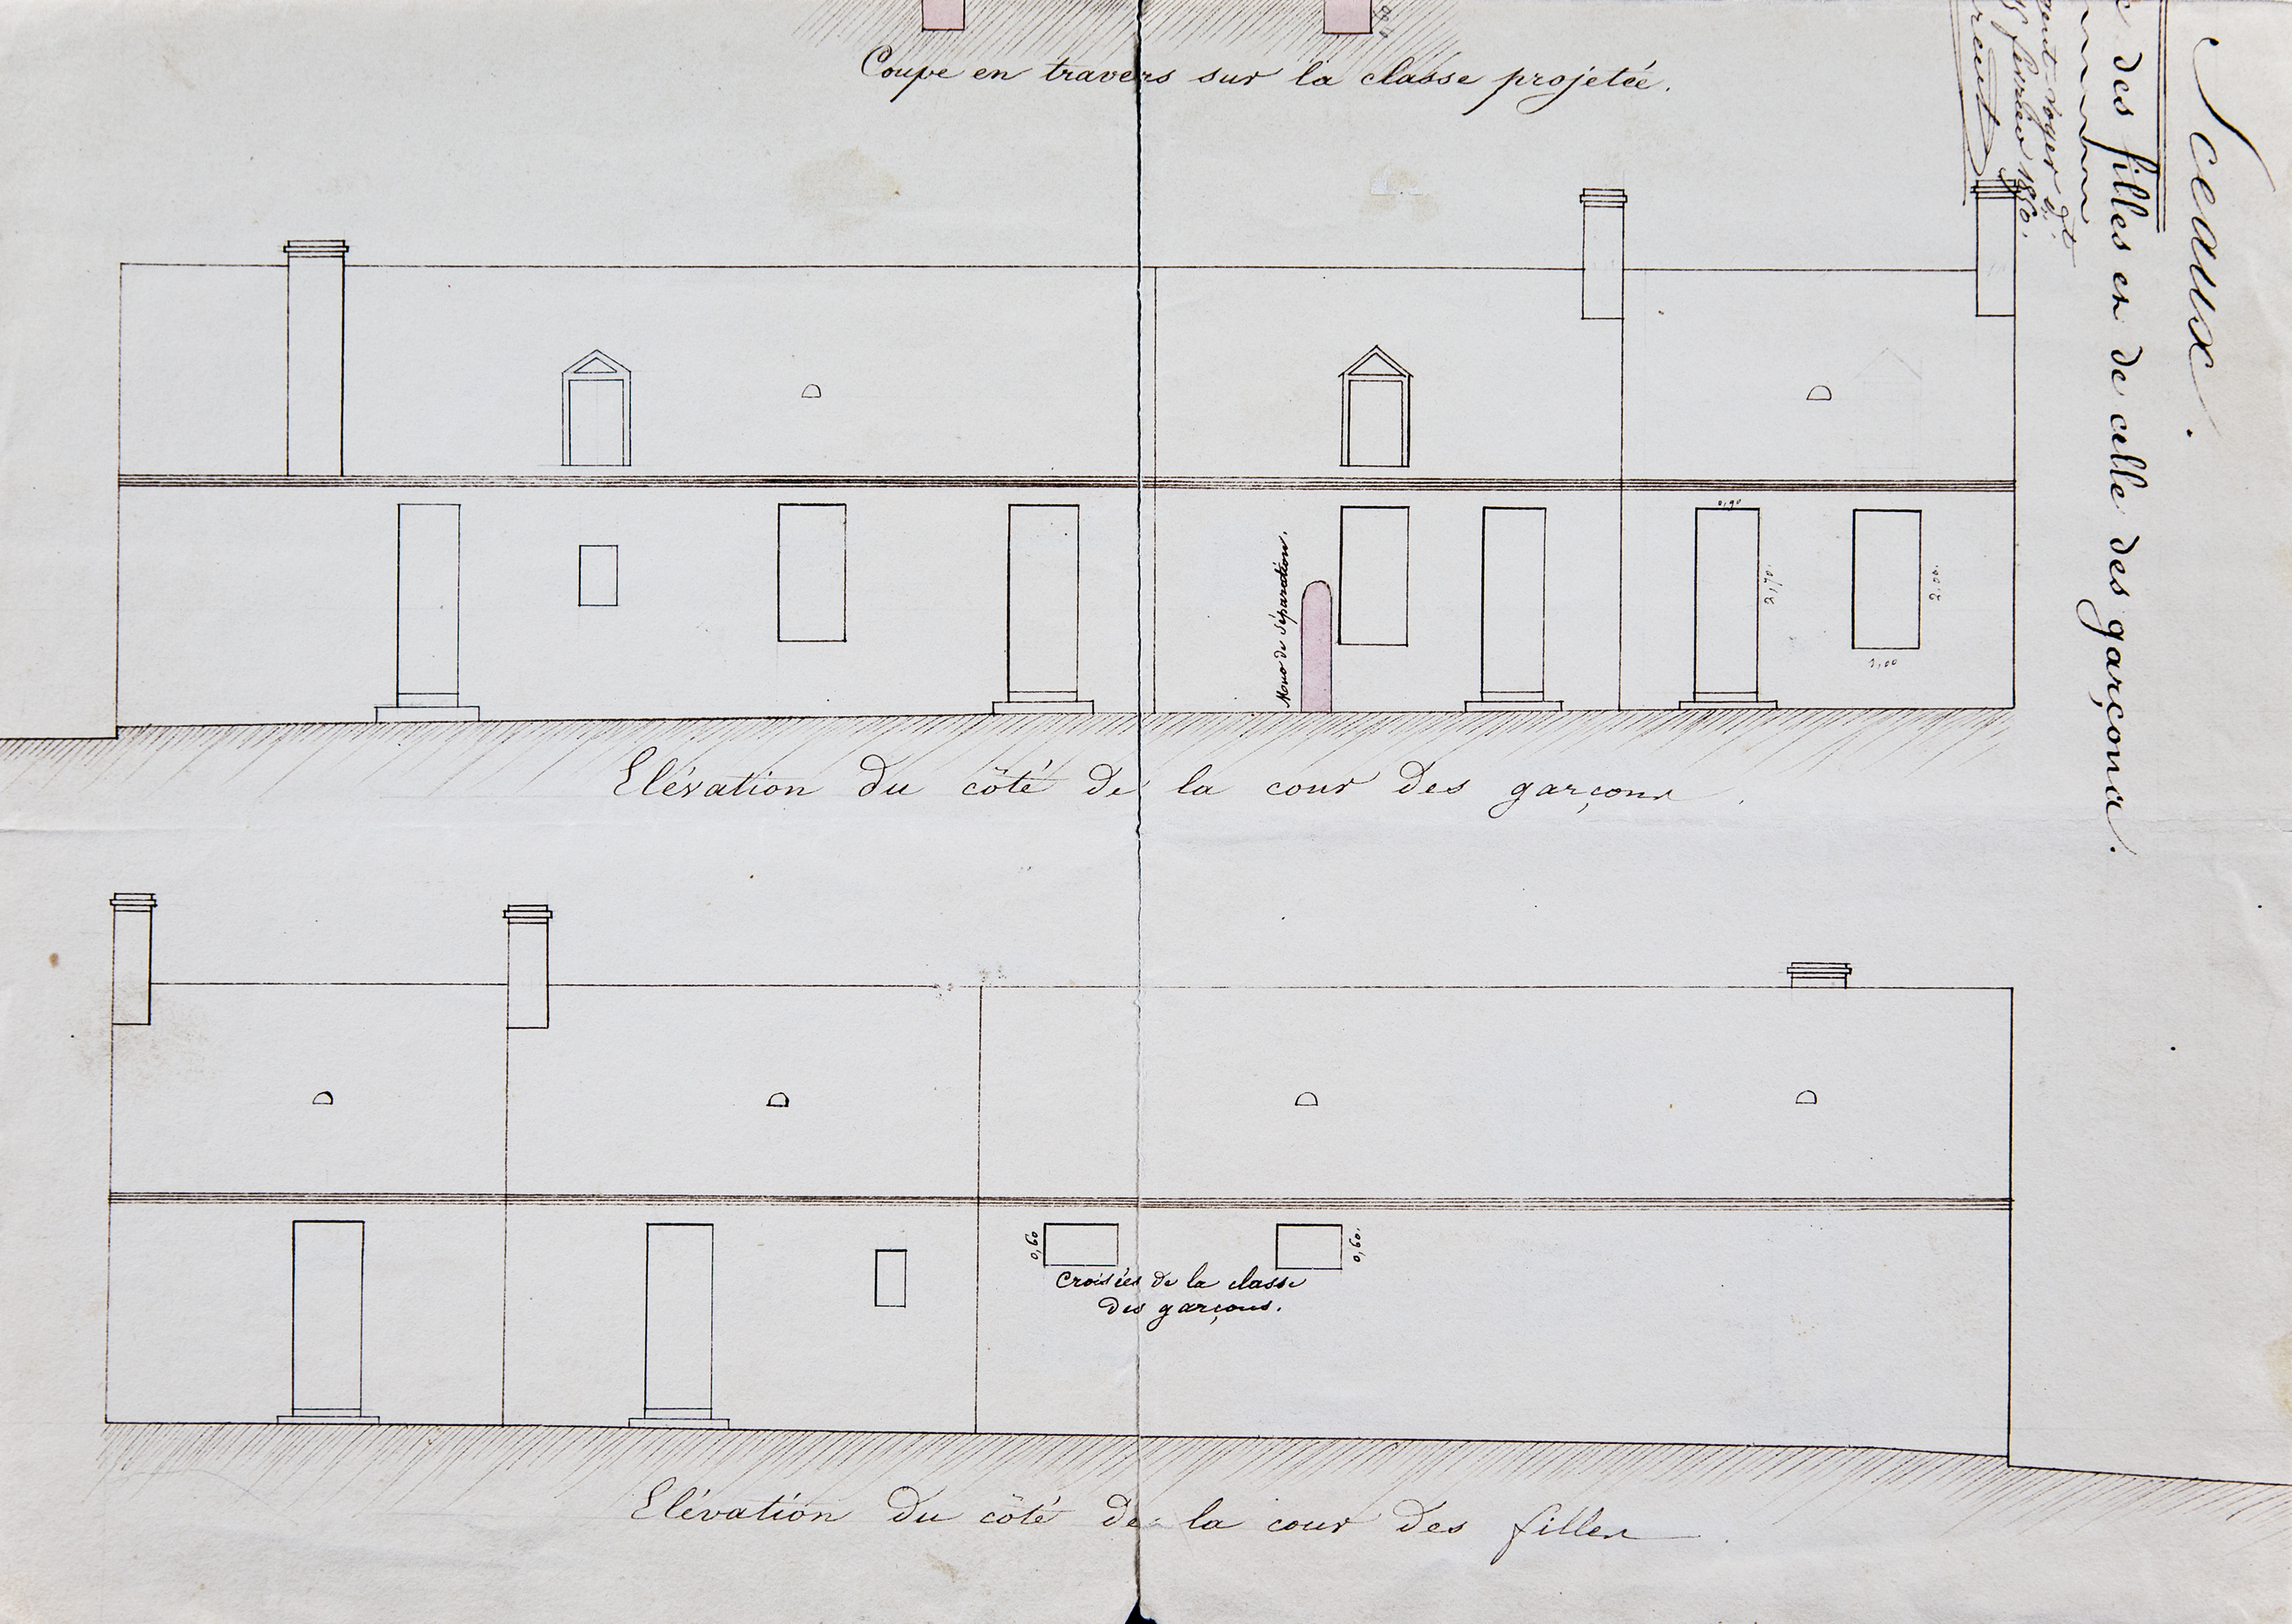 Coupe en travers sur la classe projetée.
Sceaux.
des filles en de celle des garçons.
voyer
février 1860.
0,90
2,70.
2,00.
1,00
Murs de séparation.
Elévation du côté de la cour des garçons.
0,60
0,60.
Croisées de la classe
des garçons.
Elévation du côté de la cour des filles.